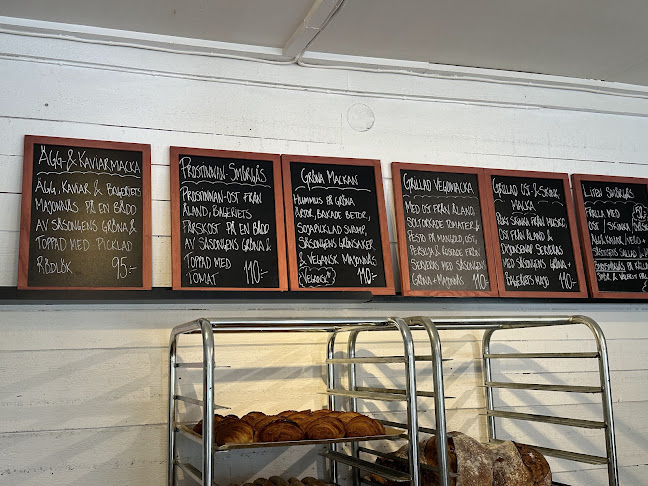 ÄGG- & KAVIARMACKA
ÄGG, KAVIAR & BAGERIETS
MAJONNÄS PÅ EN BÄDD
AV SÄSONGENS GRÖNA &
TOPPAD MED PICKLAD
RÖDLÖK 95:-
PROSTINNAN-SMÖRGÅS
PROSTINNAN-OST FRÅN
ÅLAND, BAGERIETS
FÄRSKOST PÅ EN BÄDD
AV SÄSONGENS GRÖNA &
TOPPAD MED
TOMAT 110:-
GRÖNA MACKAN
HUMMUS PÅ GRÖNA
ÄRTOR, BAKADE BETOR,
SOJAPUCKLAD SVAMP,
SÄSONGENS GRÖNSAKER
& VEGANSK MAJONNÄS
VEGANSK! 110:-
GRILLAD VEGOMACKA
MED OST FRÅN ÅLAND
SOLTORKADE TOMATER &
PESTO PÅ MANGOLD, ÖRT,
PERSILJA & RÖDLÖK
SERVERAS MED SÄSONGENS
GRÖNA + MAJONNÄS 110:-
GRILLAD OST- & SKINK
MACKA
RÖKT SKINKA FRÅN
OST FRÅN ÅLAND &
SERVERAS
MED SÄSONGENS GRÖNA +
BAGERIETS MAJO 110:-
LITEN SMÖRGÅS
FRALLA MED
OST / SKINKA
SÄSONGENS SALLAD